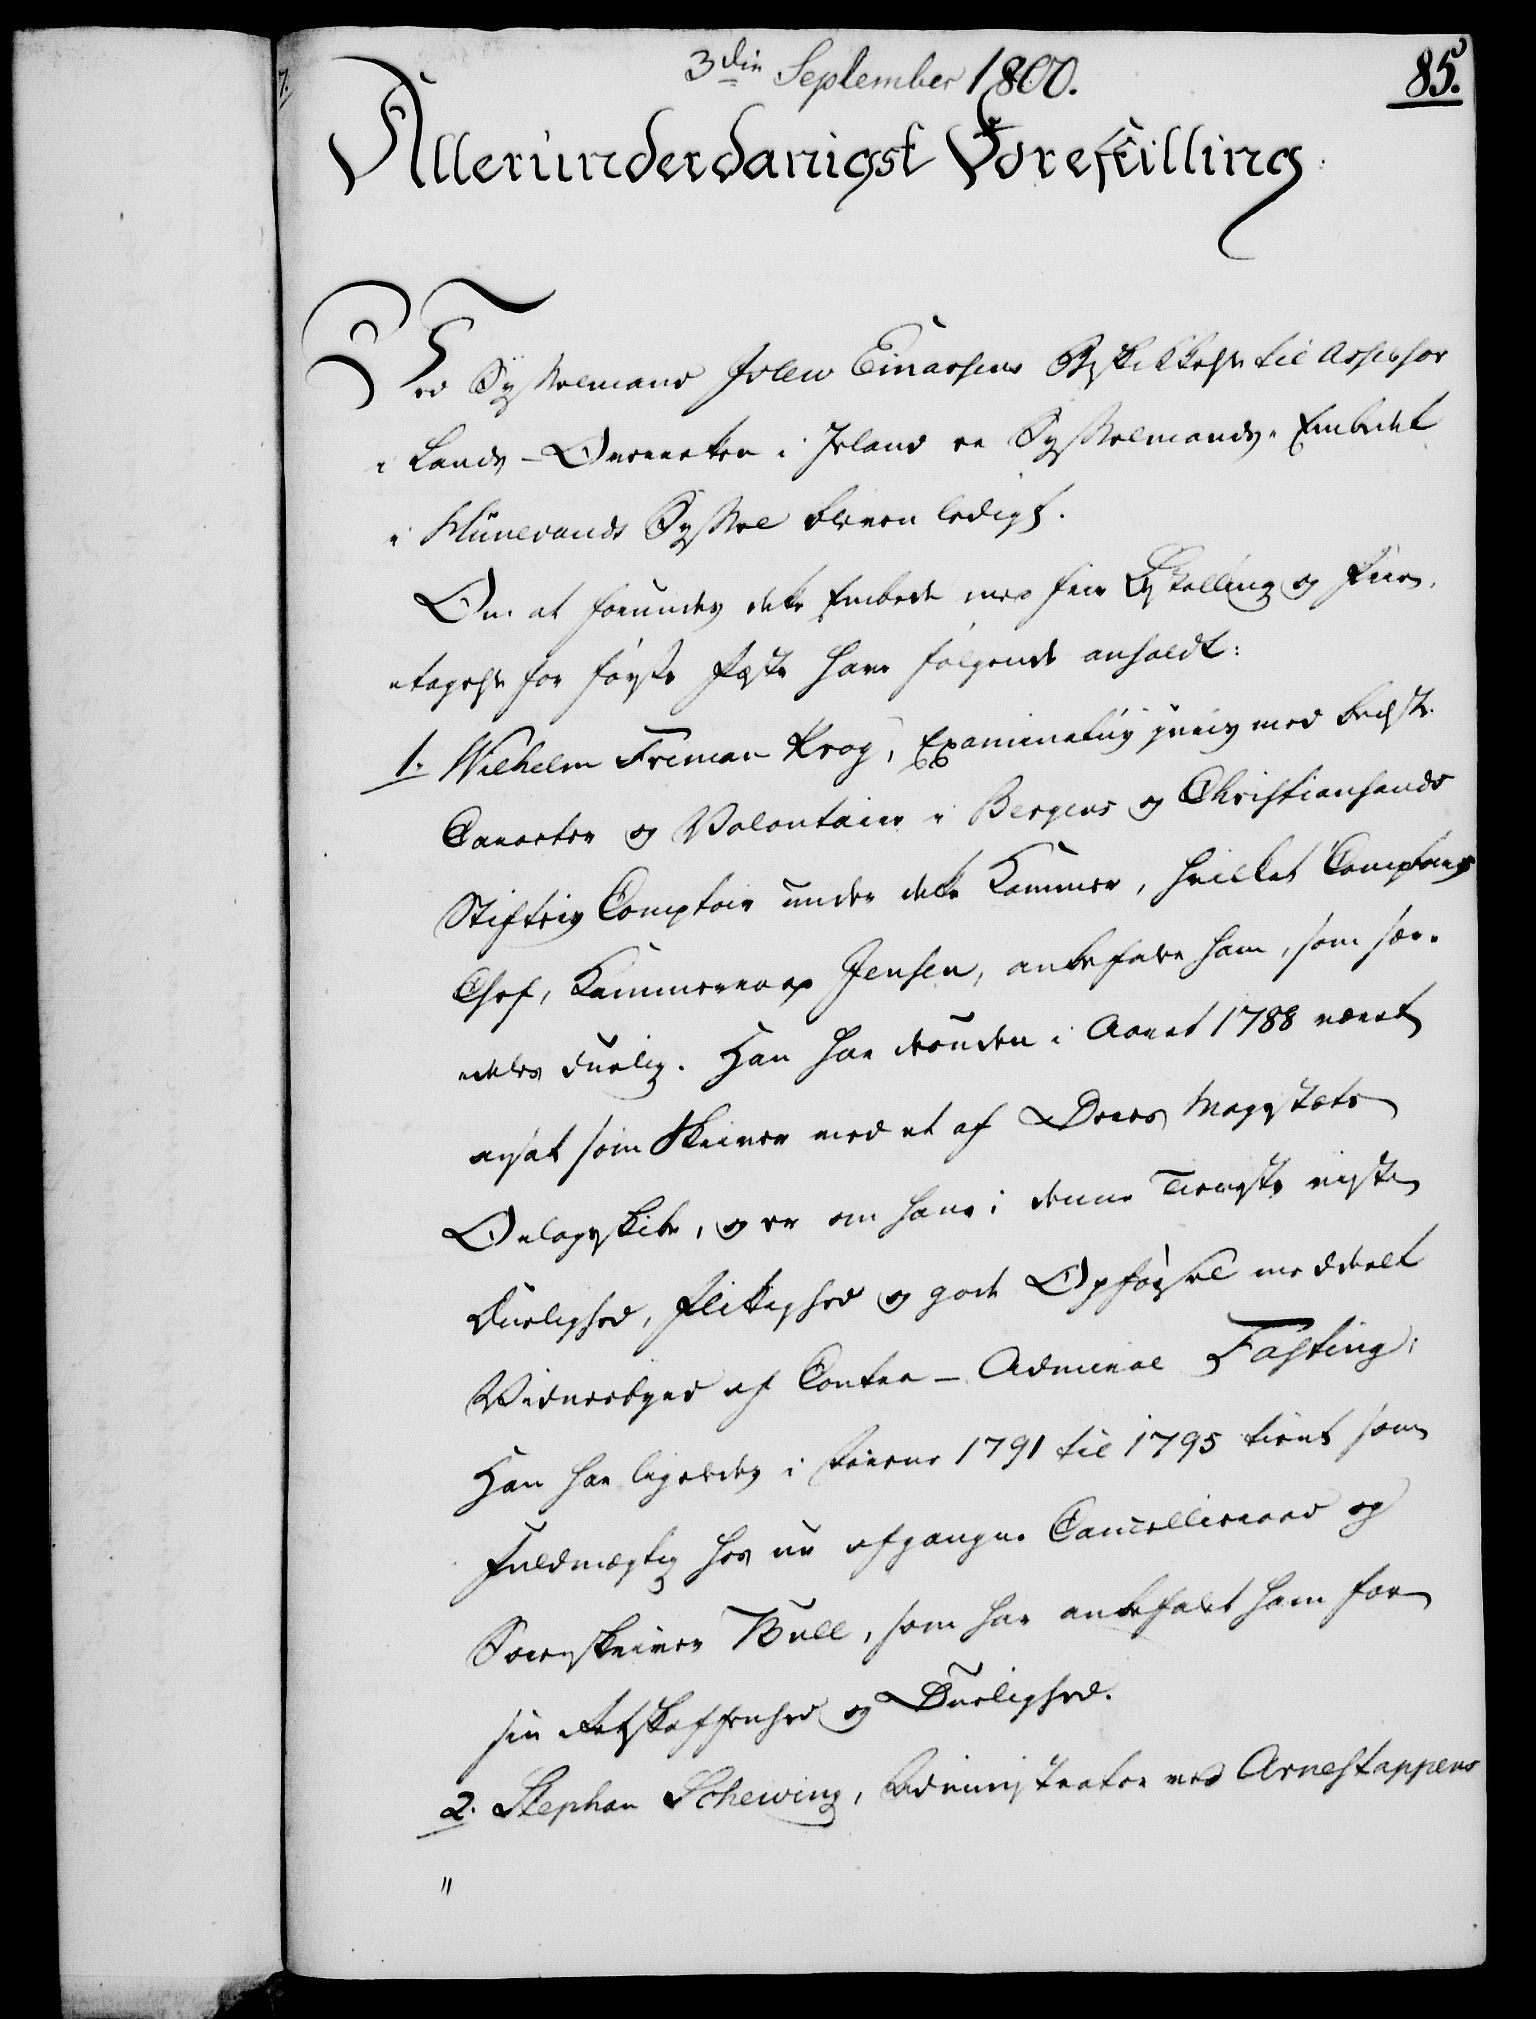 3die September 1800.
85.
Allerunderdanigst Forestilling.
Ved Sysselmand Isleiv Einarsens Beskikkelse til Assessor
i Lands-Overretten i Island er Sysselmands-Embedet
i Hünevands Syssel bleven ledigt.
Om at forundes dette Embede med frie Befalling og
-tagelse for første Fæste have følgende anholdt:
1. Wilhelm Freman Krog, Examinatus juris med bedste
Caracter og Volontair i Bergens og Christiansands
Stifters Comptoir under dette Kammer, hvilket Comptoirs
Chef, Kammerraad Jensen, anbefaler ham, som sær-
-deles duelig. Han har desuden i Aaret 1788 været
ansat som Skriver ved et af Deres Majestæts
Orlogsskibe, og er om hans i denne Tieneste viiste
Duelighed, Flittighed og gode Opførsel meddeelt
Vidnesbyrd af Contra-Admiral Fasting;
Han har ligeledes i Aarene 1791 til 1795 tient som
Fuldmægtig hos nu afgangne Cancelliraad og
Sorenskriver Bull, som har anbefalet ham for
sin Retskaffenhed og Duelighed.
2. Stephan Scheving, Administrator ved Arnestappens
"